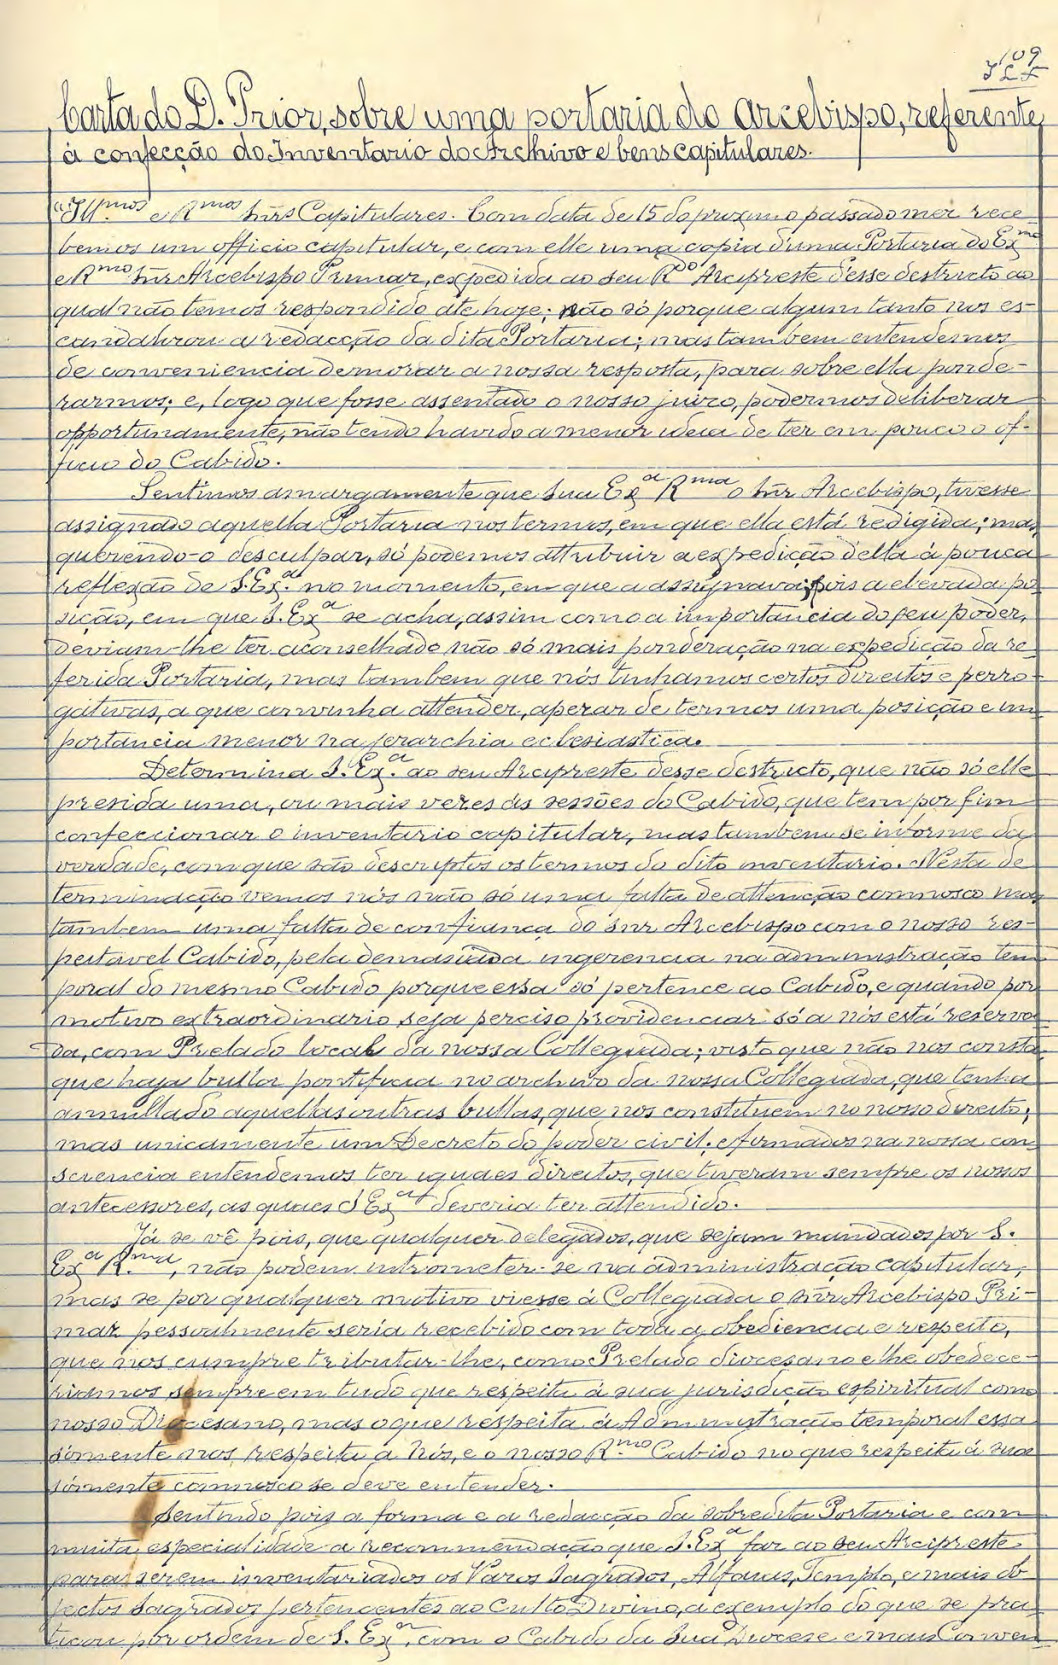 109
Carta do D. Prior, sobre uma portaria do Arcebispo, referente
á confecção do Inventario do Archivo e bens capitulares.
"Ill.mos e R.mos Snrs Capitulares. Com data de 15 do proximo passado mez rece-
bemos um officio capitular, e com elle uma copia d'uma Portaria do Ex.mo
e R.mo Snr Arcebispo Primaz, expedida ao seu R.do Arcipreste desse destricto ao
qual não temos respondido ate hoje; não só porque algum tanto nos es-
candalizou a redacção da dita Portaria; mas tambem entendemos
de conveniencia demorar a nossa resposta, para sobre ella ponde-
rarmos; e, logo que fosse assentado o nosso juizo, podermos deliberar
opportunamente, não tendo havido a menor ideia de ter em pouco o of-
ficio do Cabido.
Sentimos amargamente que Sua Ex.a R.ma o Snr Arcebispo, tivesse
assignado aquella Portaria nos termos, em que ella está redigida; mas
querendo-o desculpar, só podemos attribuir a expedição d'ella á pouca
reflexão de S. Ex.a no momento, em que a assignava; pois a elevada po-
sição, em que S. Ex.a se acha, assim como a importancia do seu poder,
deviam-lhe ter aconselhado não só mais ponderação na expedição da re-
ferida Portaria, mas tambem que nós tinhamos certos direitos e perro-
gativas, a que convinha attender, apezar de termos uma posição e im-
portancia menor na jerarchia eclesiastica.
Determina S. Ex.a ao seu Arcipreste desse destricto, que não só elle
presida uma, ou mais vezes ás sessões do Cabido, que tem por fim
confeccionar o inventario capitular, mas tambem se informe da
verdade, com que são descriptos os termos do dito inventario. Nesta de-
terminação vemos nós não só uma falta de attenção comnosco mas
tambem uma falta de confiança do Snr Arcebispo com o nosso res-
peitavel Cabido, pela demasiada ingerencia na administração tem-
poral do mesmo Cabido porque essa só pertence ao Cabido, e quando por
motivo extraordinario seja perciso providenciar só a nós está reserva-
da, com Prelado local da nossa Collegiada; visto que não nos consta
que haja bulla pontificia no archivo da nossa Collegiada, que tenha
annullado aquellas outras bullas, que nos constituem no nosso direito;
mas unicamente um Decreto do poder civil; e firmados na nossa con-
sciencia entendemos ter iguaes direitos, que tiveram sempre os nossos
antecessores, as quaes S Ex.a deveria ter attendido.
Já se vê pois, que qualquer delegados, que sejam mandados por S.
Ex.a R.ma, não podem intrometer-se na administração capitular,
mas se por qualquer motivo viesse á Collegiada o Snr Arcebispo Pri-
maz pessoalmente seria recebido com toda a obediencia e respeito,
que nos cumpre tributar-lhe, como Prelado diocesano e lhe obedece-
riamos sempre em tudo que respeita á sua jurisdição espiritual como
nosso Diocesano, mas o que respeita á Administração temporal essa
sómente nos respeita a Nós, e o nosso R.mo Cabido no que respeita á sua
sómente comnosco se deve entender.
Sentindo pois a forma e a redacção da sobredita Portaria e com
muita especialidade a recommendação que S. Ex.a faz ao seu Arcipreste
para serem inventariados os Vazos Sagrados, Alfaias, Templo, e mais ob-
jectos Sagrados pertencentes ao Culto Divino, a exemplo do que se pra-
ticou por ordem de S. Ex.a, com o Cabido da Sua Diocese e mais Conven-